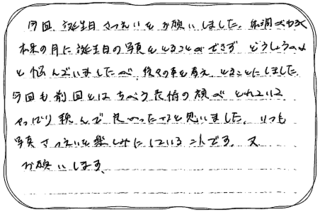 今回、誕生日さつえいをお願いしました。体調がわるく
本来の月に誕生日の写真をとることができず どうしよう
と悩んでいましたが、後々の事も考え とることにしました。
今回も前回とはちがう表情の顔が とれていて
やっぱり 頼んで 良かったなと思いました。いつも
写真さつえいを楽しみにしている 

お願いします。